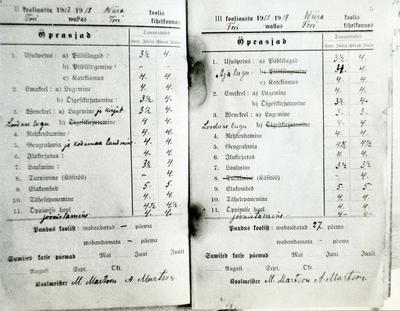 II kooliaasta 1917/1918 Wära koolis
Tori wallas Tori kihelkonnas
Õpeasjad
Tunnistused
1. Usuõpetus: a) Piiblilugud: 3½ 4.
b) Piiblilugemine: – –
c) Katekismus 4. 4.
2. Emakeel: a) Lugemine 4. 4.
b) Õigestikirjutamine: 3½ 4.
3. Wenekeel: a) Lugemine ja kirjut. 3½ 4.
Looduse lugu b) Õigestikirjutamine 4. 4.
4. Rehkendamine 4. 4.
5. Geograafia ja kodumaa tundmine 4. 4.
6. Ilukirjutus: 4. 4.
7. Laulmine: 3½ 4.
8. Turnimine (Käsitöö) – 4.
9. Elukombed 5. 5.
10. Tähelepanemine 4. 4.
11. Õppimise hool 4½ 4½
joonistamine 4. 4.
Puudus koolist: wabandatud – päewa
wabandamata – päewa
Suwised katse päewad Mai Juuni Juuli
August Sept. Okt.
Koolmeister M. Martson A. Martson
III kooliaasta 1918/1919 Wära koolis
Tori wallas Tori kihelkonnas
Õpeasjad
Tunnistused
1. Usuõpetus: a) Piiblilugud 3½ 4.
Aja lugu b) Piiblilugemine
c) Katekismus 4. 4.
2. Emakeel: a) Lugemine 4. 4.
b) Õigestikirjutamine 3½ 4.
3. Wenekeel: a) Lugemine 3. 3.
Looduse lugu b) Õigestikirjutamine 4. 4.
4. Rehkendamine 4. 4.
5. Geograafia 4½ 4½
6. Ilukirjutus 4. 4.
7. Laulmine 3½ 3½
8. Turnimine (Käsitöö) – 4.
9. Elukombed 5. 5.
10. Tähelepanemine 4. 4.
11. Õppimise hool 4. 4.
joonistamine 4. 4.
Puudus koolist: wabandatud 27 päewa
wabandamata – päewa
Suwised katse päewad Mai Juuni Juuli
August Sept. Okt.
Koolmeister M. Martson A. Martson